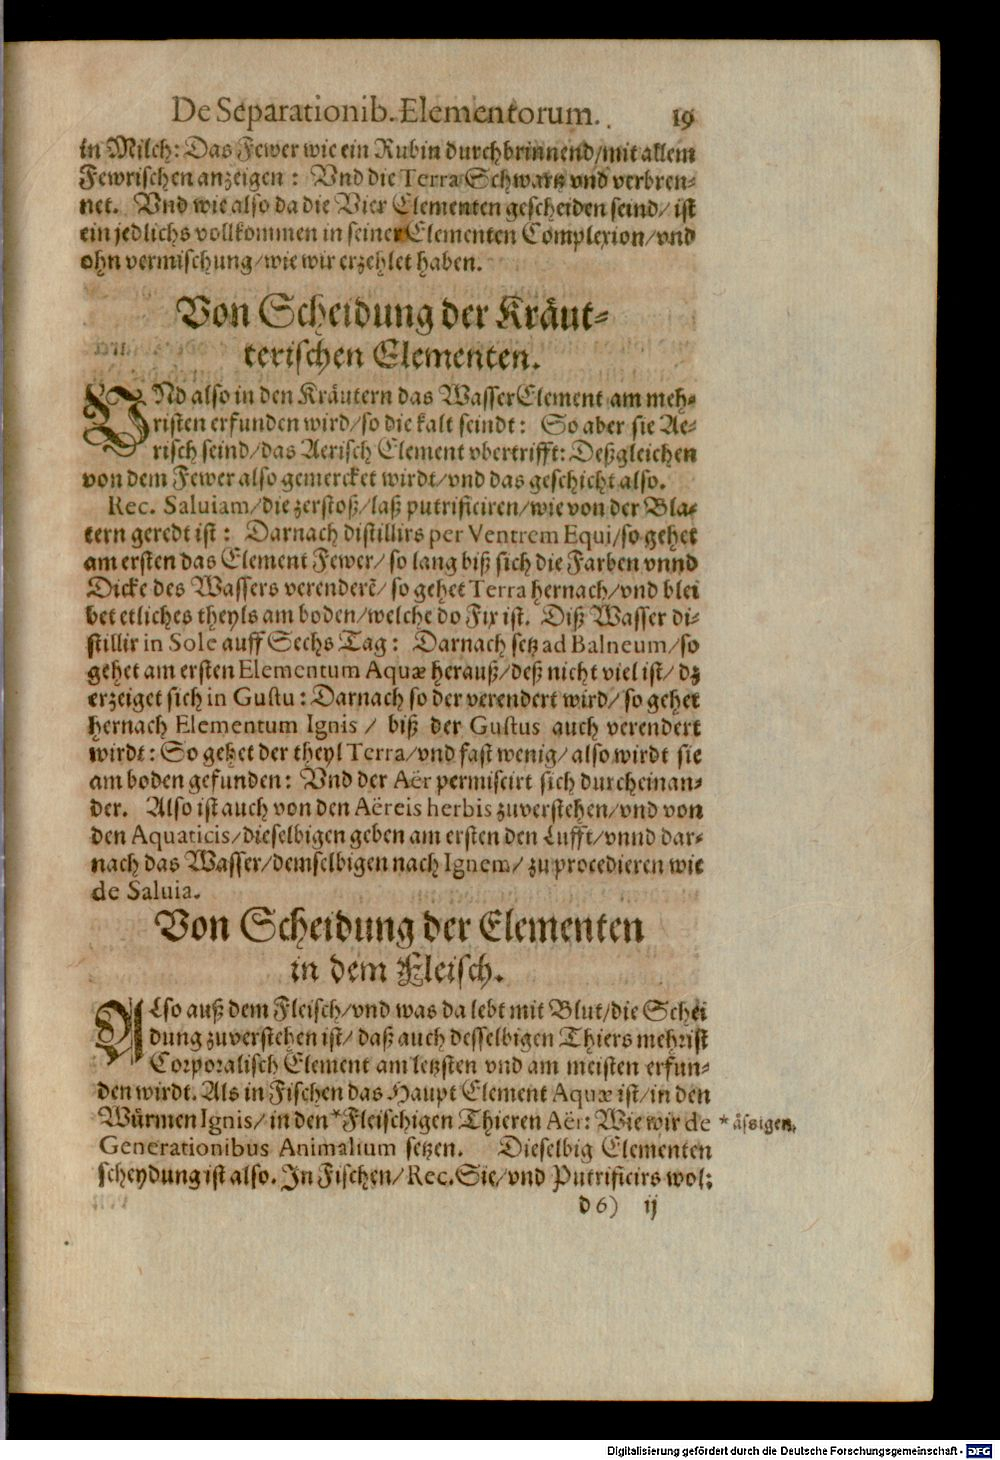 De Separationib. Elementorum. 19
in Milch: Das Fewer wie ein Rubin durchbrinnend/mit allem
Fewrischen anzeigen: Vnd die Terra Schwartz vnd verbren-
net. Vnd wie also da die Vier Elementen gescheiden seind/ ist
ein jedlichs vollkommen in seiner Elementen Complexion/vnd
ohn vermischung/wie wir erzehlet haben.
Von Scheidung der Kräut-
terischen Elementen.
VNd also in den Kräutern das Wasser Element am meh-
risten erfunden wird/so die kalt seindt: So aber sie Ae-
risch seind/das Aerisch Element vbertrifft: Deßgleichen
von dem Fewer also gemercket wirdt/vnd das geschicht also.
Rec. Saluiam/die zerstoß/laß putrificiren/wie von der Bla-
tern geredt ist: Darnach distillirs per Ventrem Equi/so gehet
am ersten das Element Fewer/ so lang biß sich die Farben vnnd
Dicke des Wassers verenderē/ so gehet Terra hernach/vnd blei
bet etliches theyls am boden/welche do Fix ist. Diß Wasser di-
stillir in Sole auff Sechs Tag: Darnach setz ad Balneum/so
gehet am ersten Elementum Aquæ herauß/deß nicht viel ist/ dz
erzeiget sich in Gustu: Darnach so der verendert wird/so gehet
hernach Elementum Ignis / biß der Gustus auch verendert
wirdt: So gehet der theyl Terra/vnd fast wenig/also wirdt sie
am boden gefunden: Vnd der Aër permiscirt sich durcheinan-
der. Also ist auch von den Aëreis herbis zuverstehen/vnd von
den Aquaticis/dieselbigen geben am ersten den Lufft/vnnd dar-
nach das Wasser/demselbigen nach Ignem/ zu procedieren wie
de Saluia.
Von Scheidung der Elementen
in dem Fleisch.
ALso auß dem Fleisch/vnd was da lebt mit Blut/die Schei
dung zuverstehen ist/ daß auch desselbigen Thiers mehrist
Corporalisch Element am letzsten vnd am meisten erfun-
den wirdt. Als in Fischen das Haupt Element Aquæ ist/in den
Würmen Ignis/in den *Fleischigen Thieren Aër: Wie wir de *ässigen.
Generationibus Animalium setzen. Dieselbig Elementen
scheydung ist also. In Fischen/Rec. Sie/vnd Putrificirs wol:
d 6) ij
Digitalisierung gefördert durch die Deutsche Forschungsgemeinschaft - DFG